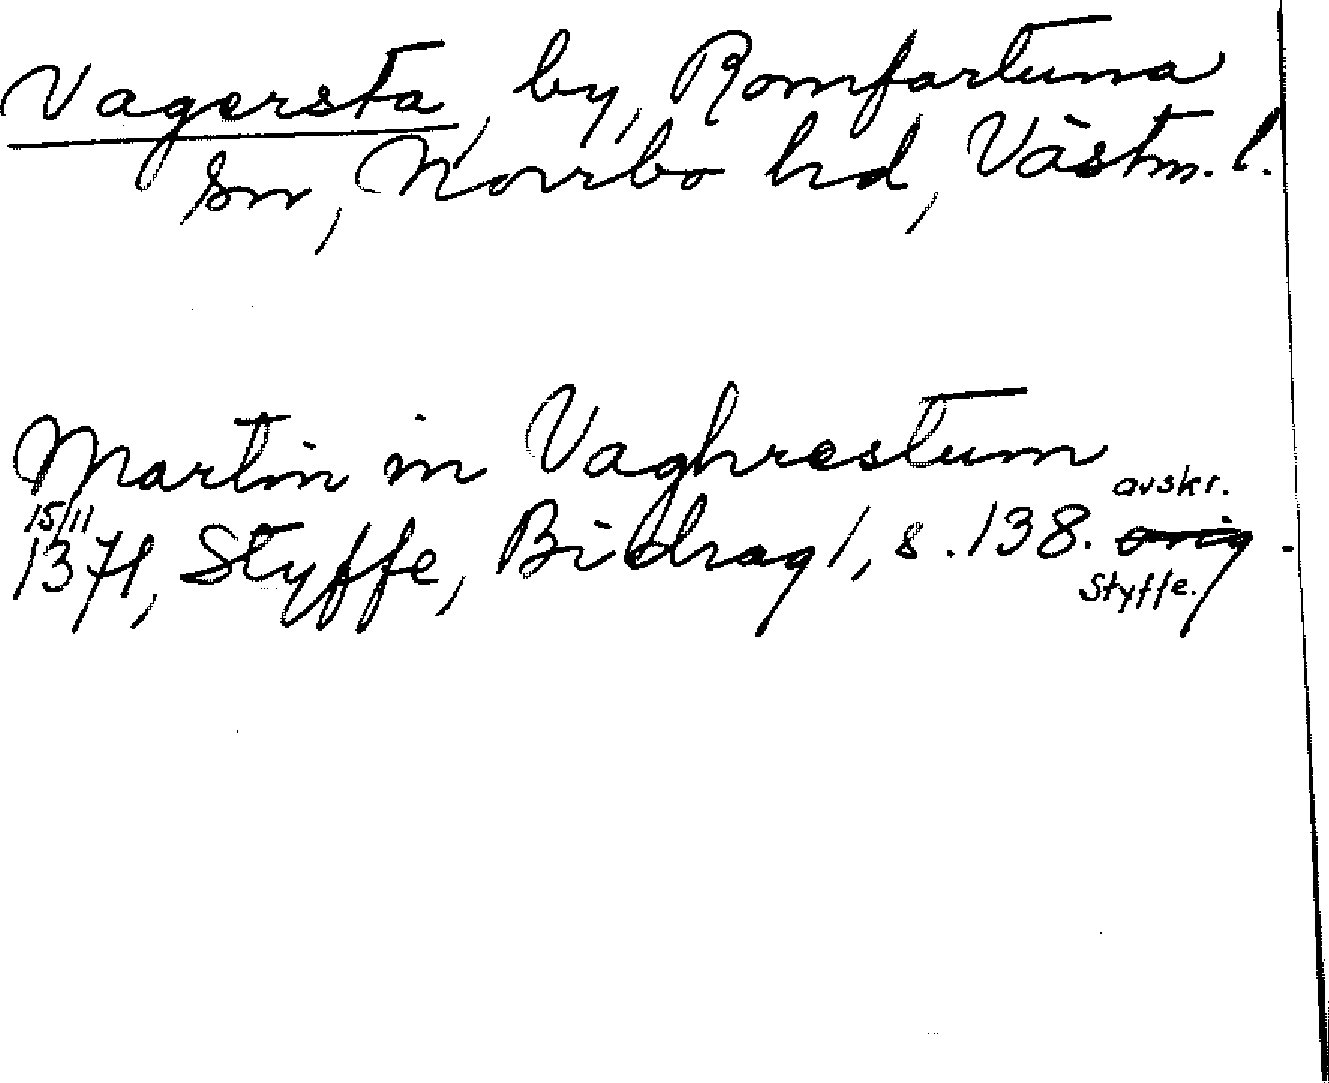 Vagersta, by, Romfartuna
sn, Norrbo hd, Västm. l.
Martin in Vaghrestum
15/11 avskr.
1371, Styffe, Bidrag 1, s. 138. orig.
Styffe.